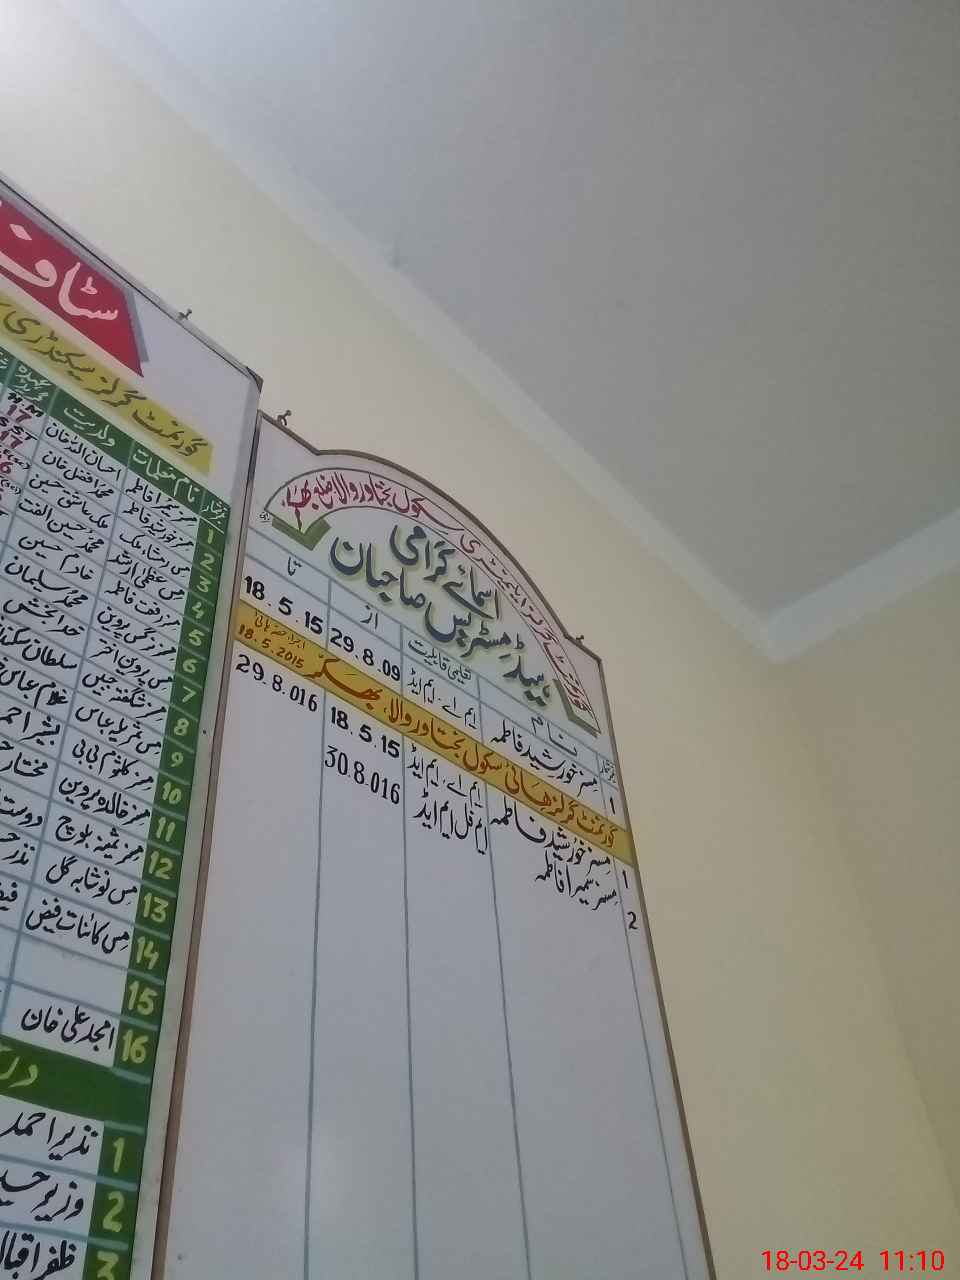 گورنمنٹ گرلز ایلیمنٹری سکول بختاور والا ضلع بھکر
اسمائے گرامی
ہیڈ مسٹریس صاحبان
نمبر شمار نام تعلیمی قابلیت از تا
1 مسز خورشید فاطمہ ایم اے ۔ ایم ایڈ 29.8.09 18.5.15
گورنمنٹ گرلز ہائی سکول بختاور والا، بھکر 18.5.2015
1 مسز خورشید فاطمہ ایم اے ، ایم ایڈ 18.5.15 29.8.016
2 مسز سمیرا فاطمہ ایم فل ایم ایڈ 30.8.016
سٹاف
گورنمنٹ گرلز سیکنڈری
نمبر شمار نام معلمات ولدیت عہدہ گریڈ
1 مسز سمیرا فاطمہ احسان اللہ خان H.M 17
2 مسز خورشید فاطمہ محمد افضل خان SST 17
3 مس رمشاء ملک ملک عاشق حسین
4 مس عظمیٰ ارشد محمد حسین الفت
5 مسز رفعت فاطمہ خادم حسین
6 مسز نرگس پروین محمد سلیمان
7 مس پروین اختر خدا بخش
8 مسز شگفتہ جبیں سلطان سکندر
9 مس شمریلہ عباس غلام عباس
10 مسز کلثوم بی بی بشیر احمد
11 مسز خالدہ پروین مختار
12 مسز ثمینہ بلوچ دوست
13 مس نوشابہ گل نذر
14 مس کائنات فیض فیض
15
16 امجد علی خان
1 نذیر احمد
2 وزیر
3 ظفر اقبال
18-03-24 11:10